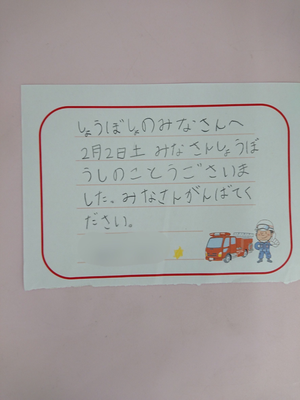 しょうぼしょのみなさんへ
2月2日土 みなさんしょうぼ
うしのことうごさいま
した。みなさんがんばてく
ださい。